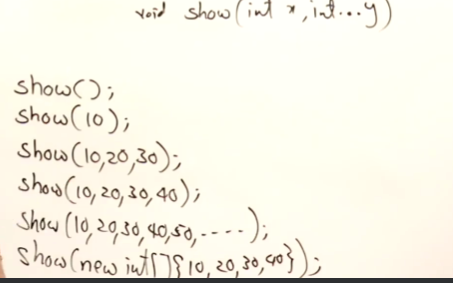 void show(int x, int...y)
show();
show(10);
show(10,20,30);
show(10,20,30,40);
show(10,20,30,40,50,----);
show(new int[]{10,20,30,40});